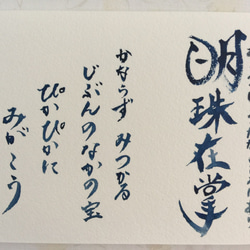 明珠在掌
かならず みつかる
じぶんのなかの宝
ぴかぴかに
みがこう